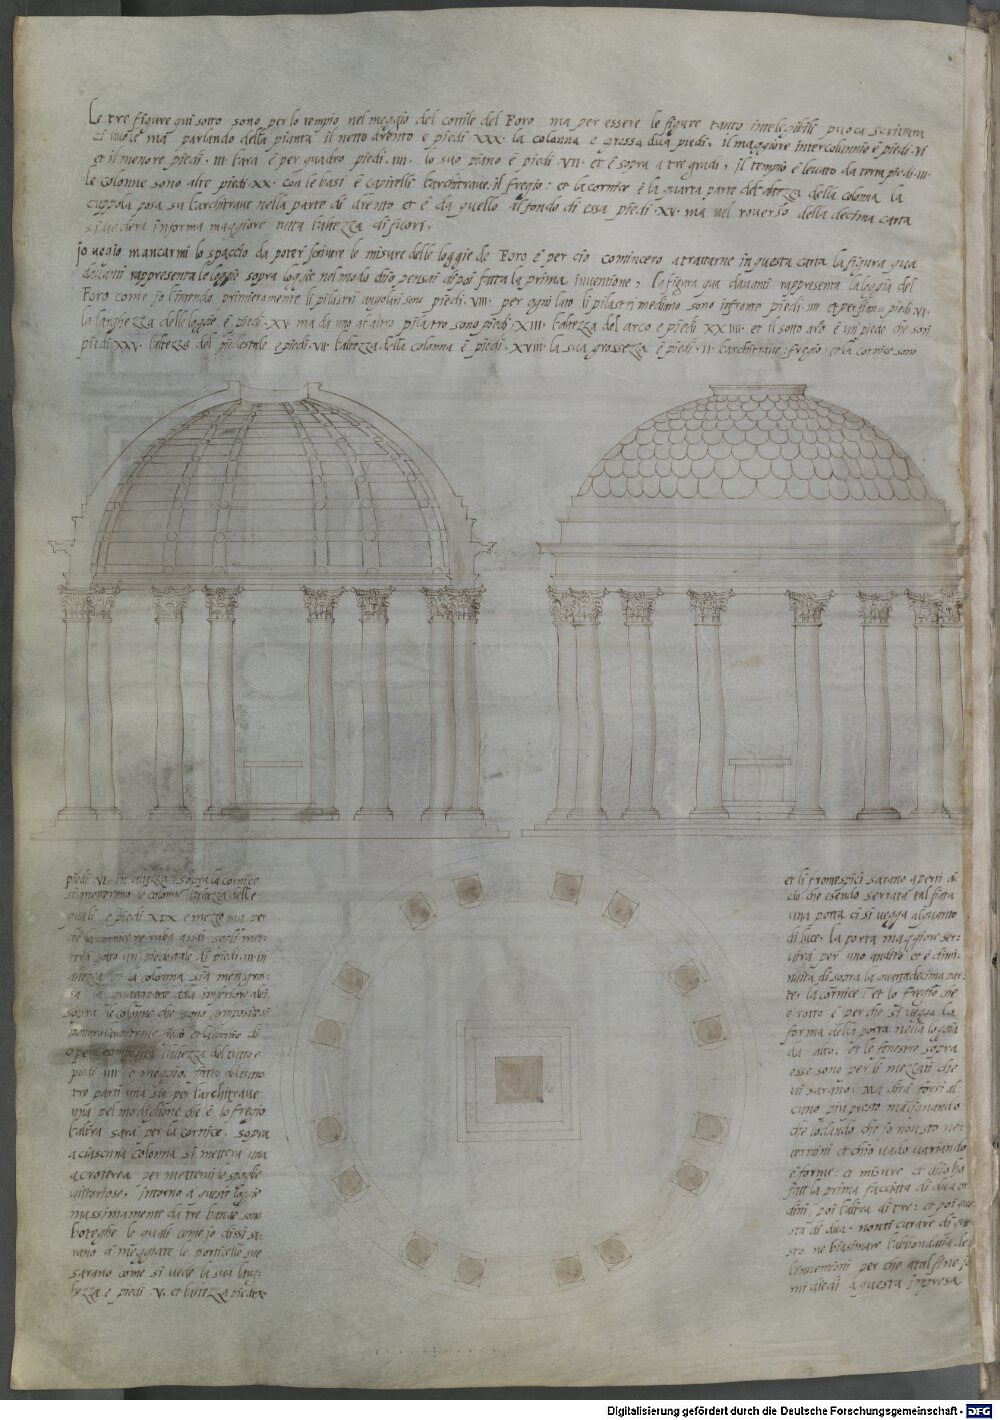 Le tre figure qui sotto sono per lo tempio nel meggio del cortile del Foro ma per essere le figure tanto intelegibili puoca scrittura
ci vuole ma parlando della pianta il netto drento e piedi XXX la colonna e grossa dua piedi, il maggiore intercolunnio è piedi VI
et il menore piedi III l'ara è per quadro piedi IIII lo suo piano è piedi VII et è sopra a tre gradi, il tempio è levato da terra piedi III
le colonne sono alte piedi XX con le basi è capitelli l'architrave il fregio: et la cornice è la quarta parte del altezza della colonna la
cuppola posa su l'architrave nella parte di drento et è da quello al fondo di essa piedi XV ma nel roverso della decima carta
si vederà in forma maggiore tutta l'altezza di fuori.
jo veggio mancarmi lo spaccio da poter scrivere le misure delle loggie de Foro è per ciò comincerò a trattarne in questa carta la figura qua
davanti rappresenta le loggie sopra loggie nel modo ch'io pensai dipoi fatta la prima inventione, la figura qua davanti rappresenta la loggia del
Foro come jo l'intendo primieramente li pilastri angolari sono piedi VIII per ogni lato li pilastri mediano sono in fronte piedi III et per fianco piedi VI
la larghezza delle loggie è piedi XV ma da uno a l'altro pilastro sono piedi XIII l'altezza del arco e piedi XXIIII et il sotto arco è un piede che son
piedi XXV l'altezza del piedestale e piedi VII l'altezza della colonna è piedi XVIII la sua grossezza è piedi II l'architrave: fregio: et la cornice sono
piedi VI in altezza, sopra la cornice
si metterano le colonne l'altezza delle
quali è piedi XIX e mezzo ma per
che la cornice ne ruba assai segli met-
terà sotto un piedestale di piedi III in
altezza et la colonna sia men gros-
sa la quarta parte della inferiore alei,
sopra le colonne che sono composite si
mettera l'architrave fregio et la cornice di
opera composita l'altezza del tutto e
piedi IIII e meggio, fatto del tutto
tre parti una sia per l'architrave
una pel modiglione che è lo fregio
l'altra sara per la cornice, sopra
a ciascuna colonna si mettera una
acroterea per mettervi le spoglie
vittoriose, intorno a queste loggie
massimamente da tre bande sono
boteghe le quali come jo dissi sa-
rano a meggiate le porticelle sue
sarano come si vede la sua larg-
hezza e piedi V. et l'altezza piedi X
et li frontespici sarano aperti a
ciò che esendo serrata tal fiata
una porta ci si vegga alquanto
di luce, la porta maggiore ser-
virà per uno andito et è dimi-
nuita di sopra la quartadecima par-
te, la cornice: et lo fregio sie
è rotto è perche si vegga la
forma della porta nella loggia
da alto: et le fenestre sopra
esse sono per li mezzati che
vi sarano, Ma dirà forsi al
cuno piu presto malignando
che lodando che jo non sto ne
termini et ch'io vado variando
è forme: et misure et ch'io ho
fatt la prima facciata di dua or
dini: poi l'altra di tre: et poi que
sta di dua. non ti curare di que
sto ne biasimare l'abbondantia de
l'inventioni per che a tal fine jo
mi diedi a questa impresa
Digitalisierung gefördert durch die Deutsche Forschungsgemeinschaft - DFG